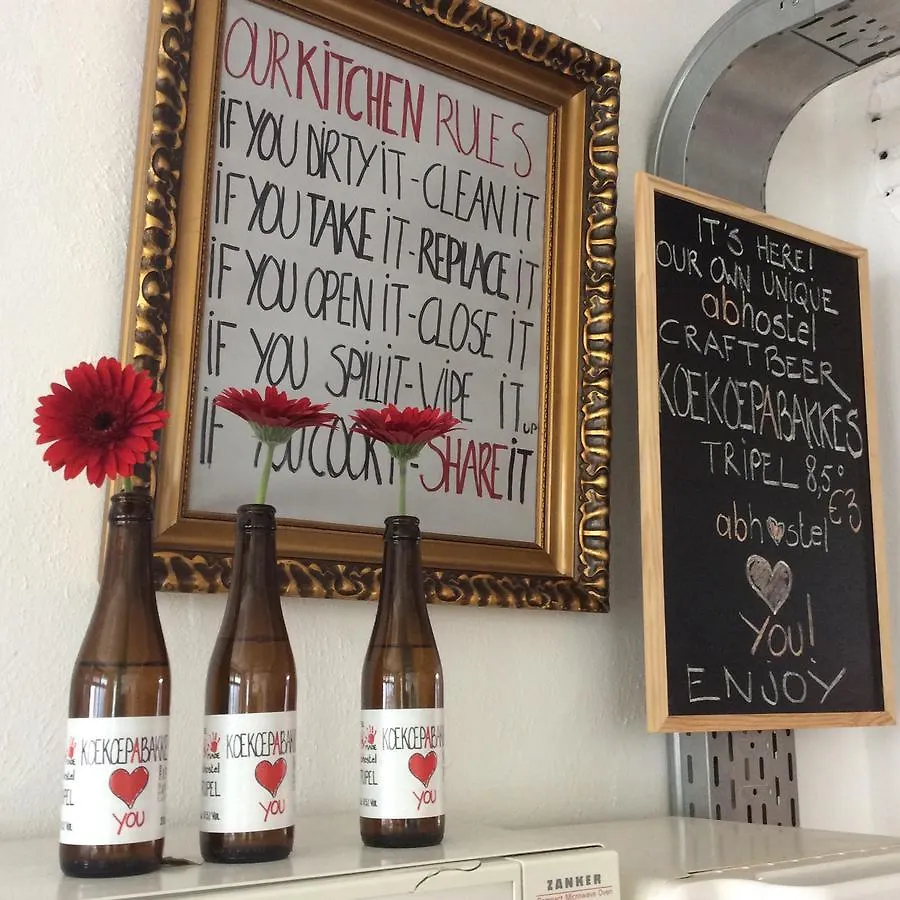 OUR KITCHEN RULES
IF YOU DIRTY IT - CLEAN IT
IF YOU TAKE IT - REPLACE IT
IF YOU OPEN IT - CLOSE IT
IF YOU SPILL IT - WIPE IT UP
IF YOU COOK IT - SHARE IT
IT'S HERE!
OUR OWN UNIQUE
abhostel
CRAFT BEER
KOEKOEPABAKKES
TRIPEL 8,5°
€3
abhostel
YOU!
ENJOY
KOEKOEPABAKKE
YOU
MADE
KOEKOEPABAKK
hostel
TRIPEL
YOU
MADE
KOEKOEPABA
PEL
YOU
ZANKER
Compact Microwave Oven